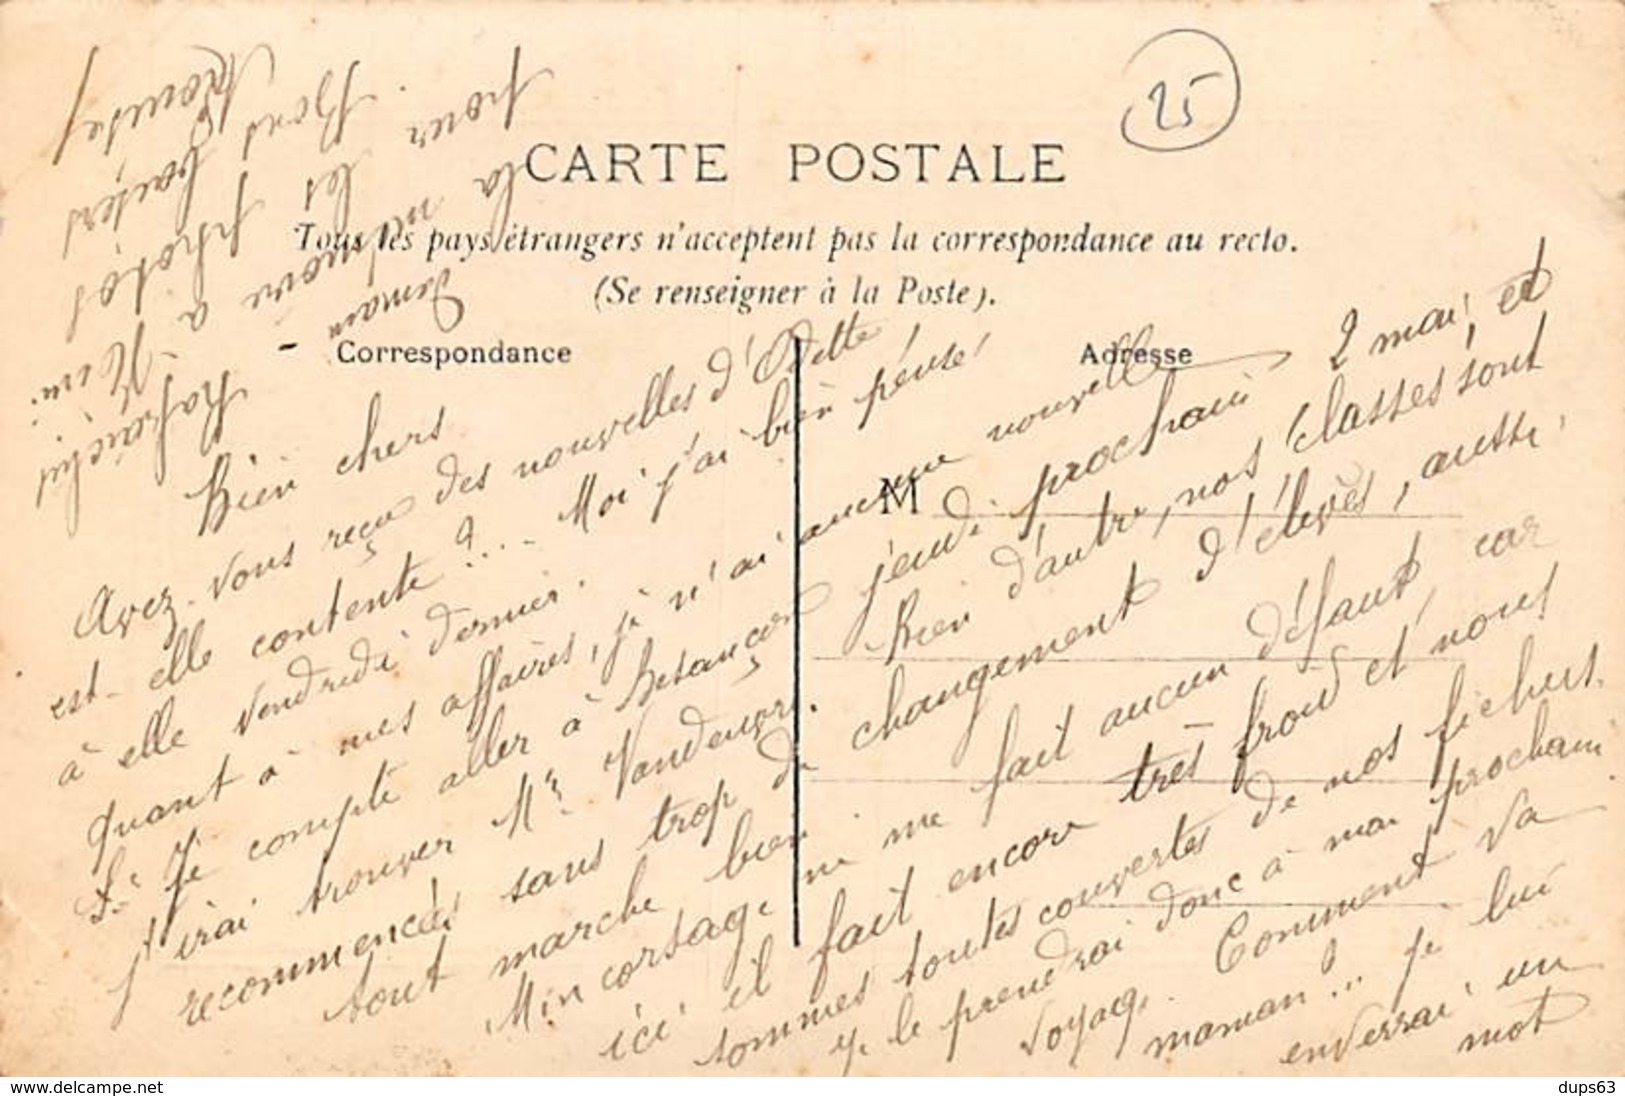 25
CARTE POSTALE
Tous les pays étrangers n'acceptent pas la correspondance au recto.
(Se renseigner à la Poste).
Correspondance
Adresse
M
Bien chers
Avez-vous reçu des nouvelles d'Odette
est-elle contente ?... Moi j'ai bien pensé
à elle vendredi dernier.
Quant à mes affaires, je n'ai aucune nouvelle
Je compte aller à Besançon jeudi prochain 2 mai, et
j'irai trouver Mr Vandeuvre. Rien d'autre, nos classes sont
recommencées sans trop de changement d'élèves, aussi
tout marche bien
Mon corsage ne me fait aucun défaut, car
ici il fait encore très froid et nous
sommes toutes couvertes de nos fichus.
je le prendrai donc à mon prochain
voyage. Comment va
maman ?... je lui
enverrai un
mot
demain
Rafraichis
la mémoire à
pour les photos
Bons baisers